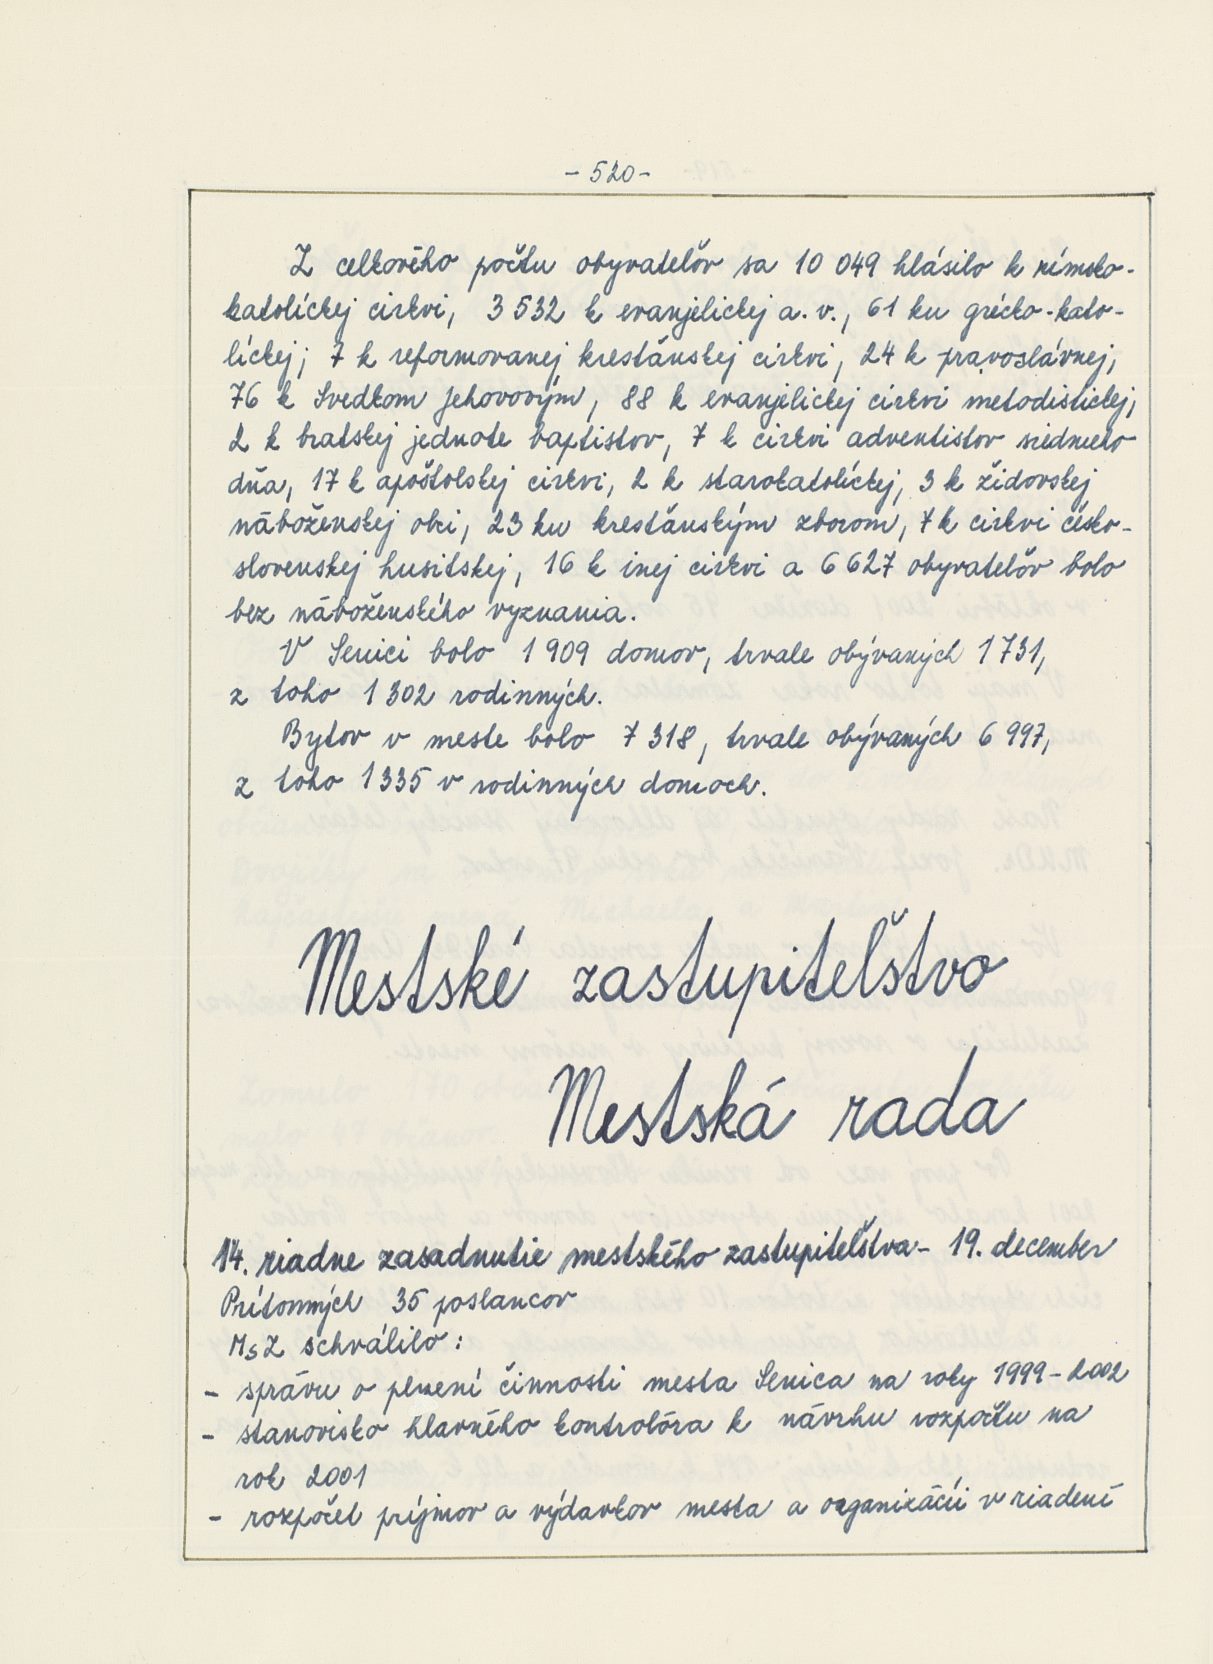 - 520 -
Z celkového počtu obyvateľov sa 10 049 hlásilo k rímsko-
katolíckej cirkvi, 3 532 k evanjelickej a. v., 61 ku grécko-kato-
líckej; 7 k reformovanej kresťánskej cirkvi, 24 k pravoslávnej,
76 k Svedkom Jehovovým, 88 k evanjelickej cirkvi metodistickej,
2 k bratskej jednote baptistov, 7 k cirkvi adventistov siedmeho
dňa, 17 k apoštolskej cirkvi, 2 k starokatolíckej, 3 k židovskej
náboženskej obci, 23 ku kresťánským zborom, 7 k cirkvi česko-
slovenskej husitskej, 16 k inej cirkvi a 6 627 obyvateľov bolo
bez náboženského vyznania.
V Senici bolo 1 909 domov, trvale obývaných 1 731,
z toho 1 302 rodinných.
Bytov v meste bolo 7 318, trvale obývaných 6 997,
z toho 1 335 v rodinných domoch.
Mestské zastupiteľstvo
Mestská rada
14. riadne zasadnutie mestského zastupiteľstva - 19. december
Prítomných 35 poslancov
MsZ schválilo:
- správu o plnení činnosti mesta Senica na roky 1999 - 2002
- stanovisko hlavného kontrolóra k návrhu rozpočtu na
rok 2001
- rozpočet príjmov a výdavkov mesta a organizácií v riadení